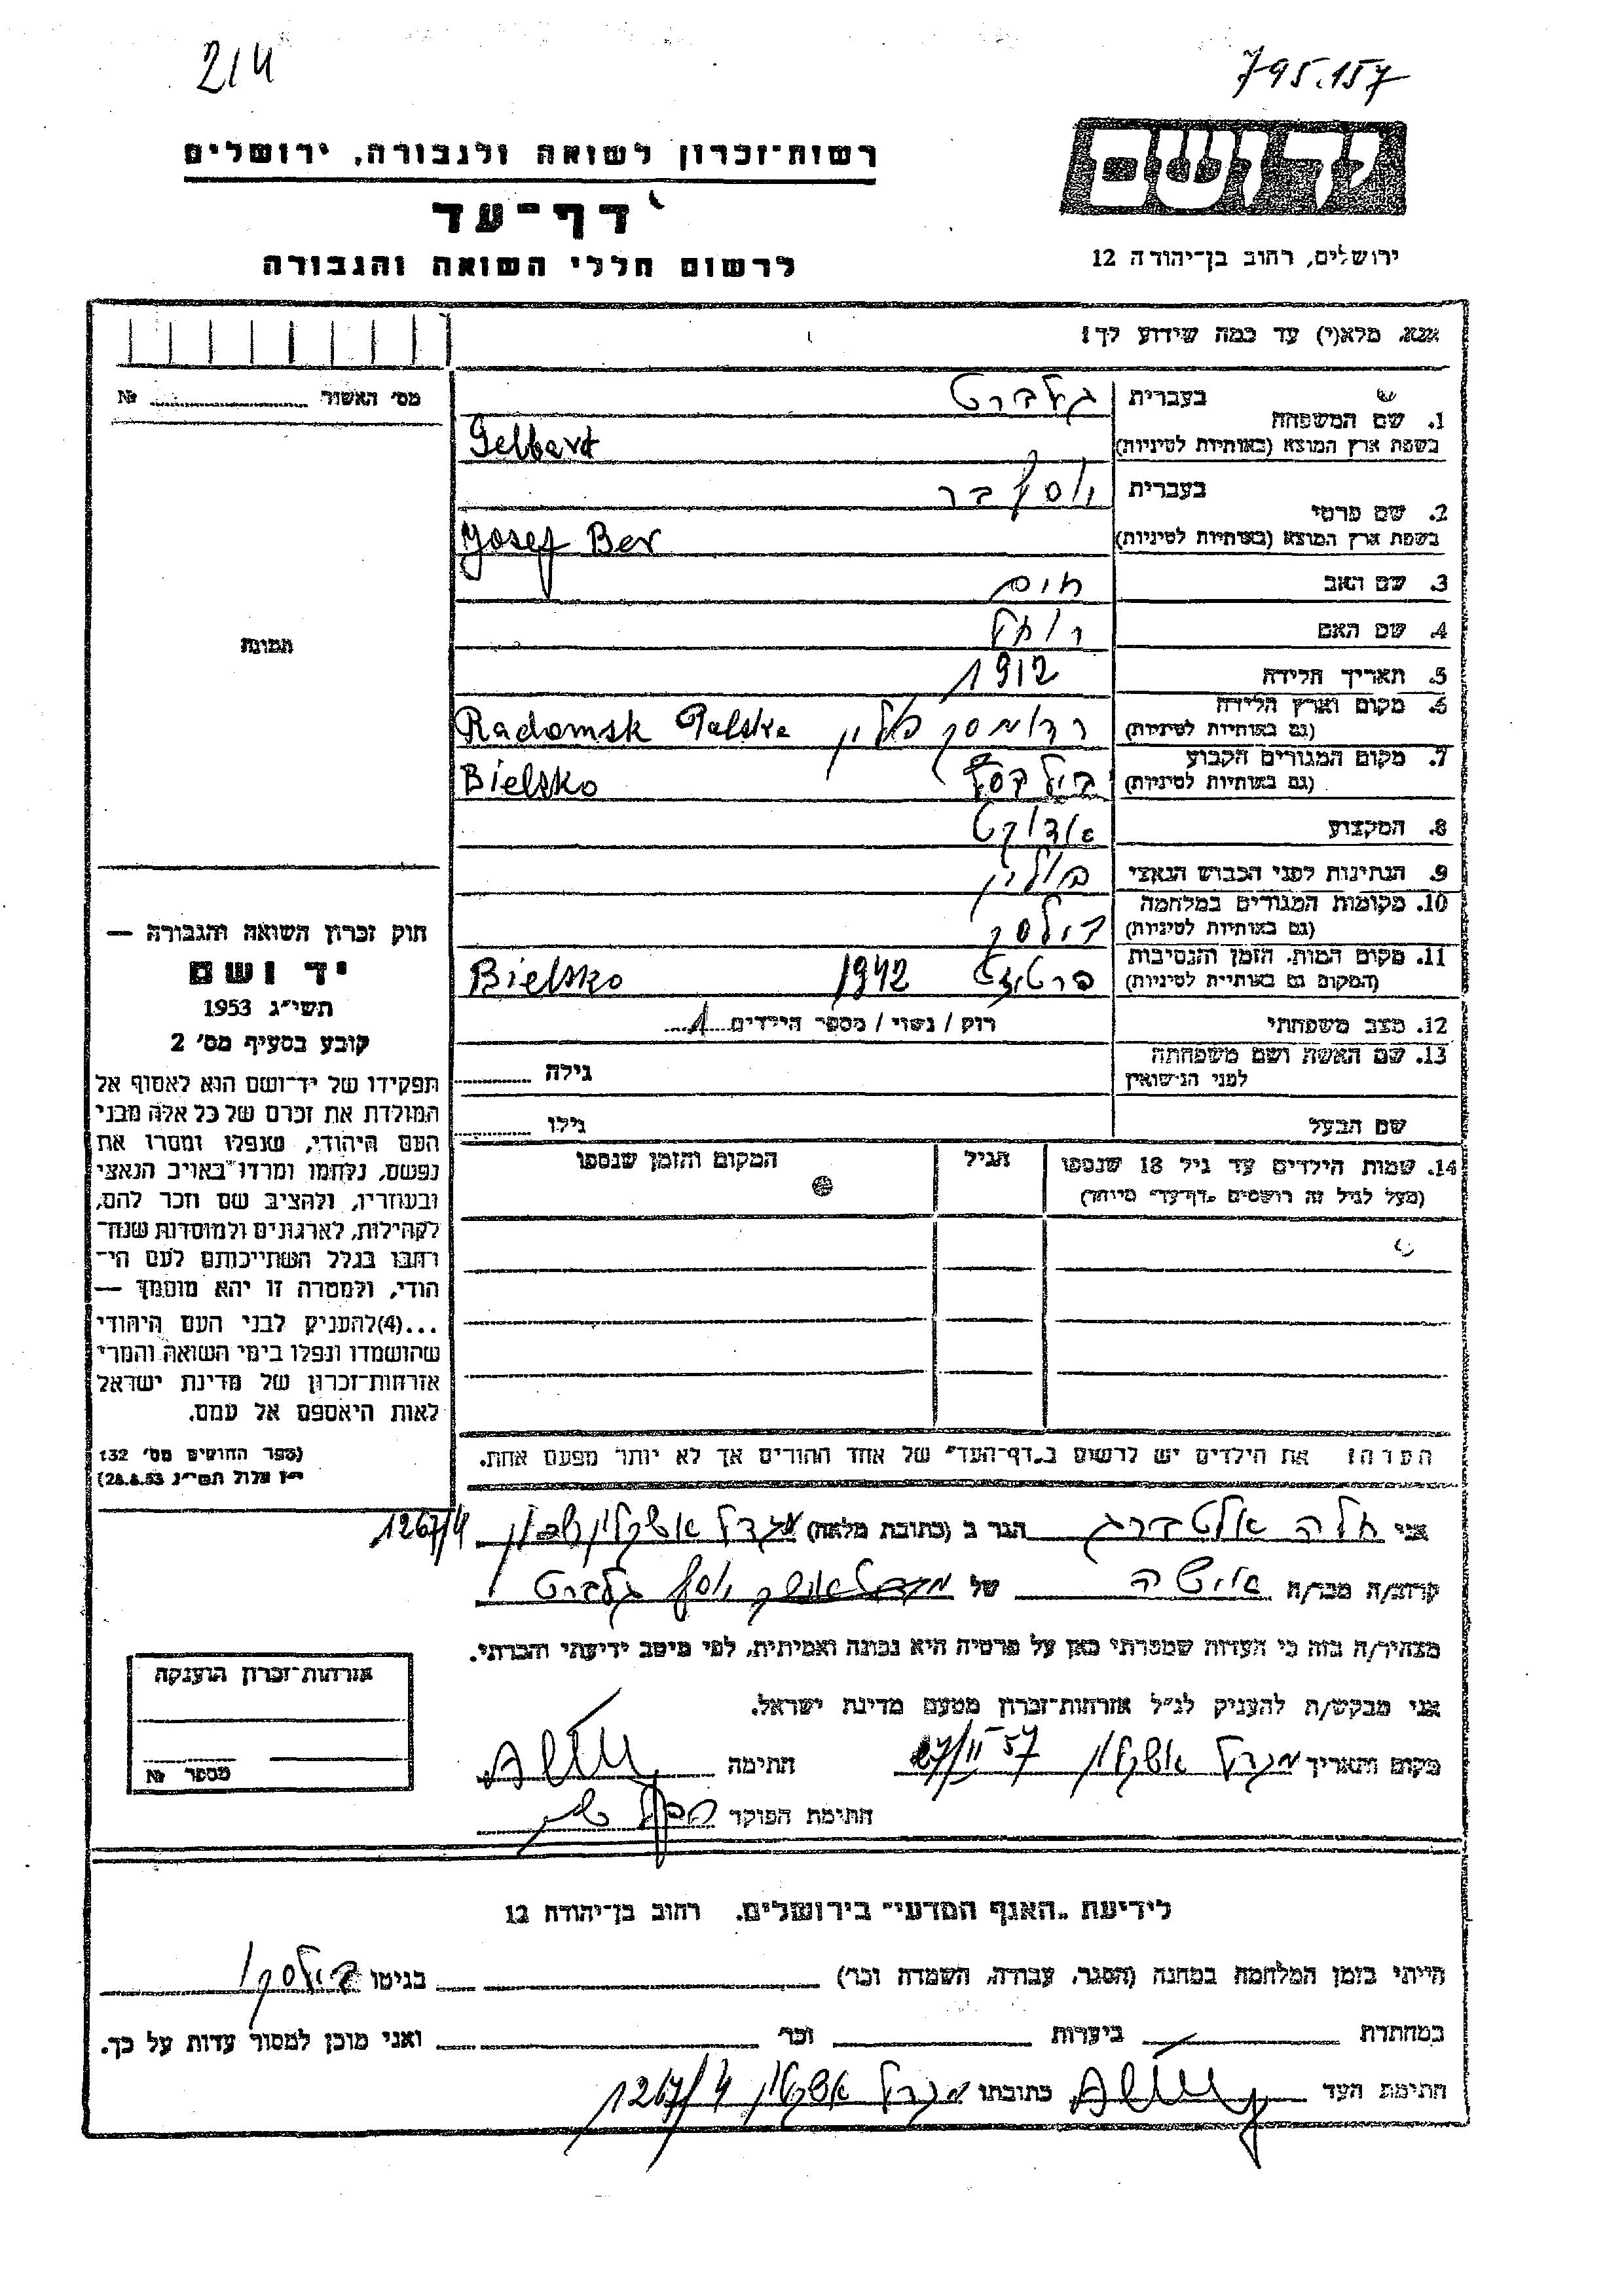 214
795.157
רשות־זכרון לשואה ולגבורה, ירושלים
דף־עד
לרשום חללי השואה והגבורה
יד ושם
ירושלים, רחוב בן־יהודה 12
אנא, מלא(י) עד כמה שידוע לך!
מס׳ האשור № 
תמונה
1. שם המשפחה בעברית גלברט
בשפת ארץ המוצא (באותיות לטיניות) Gelbart
2. שם פרטי בעברית יוסף בר
בשפת ארץ המוצא (באותיות לטיניות) Josef Ber
3. שם האב חיים
4. שם האם רוחל
5. תאריך הלידה 1912
6. מקום וארץ הלידה (גם באותיות לטיניות) רדומסק פולין Radomsk Polska
7. מקום המגורים הקבוע (גם באותיות לטיניות) Bielsko
8. המקצוע
9. הנתינות לפני הכבוש הנאצי פולין
10. מקומות המגורים במלחמה (גם באותיות לטיניות)
11. מקום המות, הזמן והנסיבות (המקום גם באותיות לטיניות) 1942 Bielsko
12. מצב משפחתי רוק / נשוי / מספר הילדים 1
13. שם האשה ושם משפחתה לפני הנישואין גילה
שם הבעל גילו
14. שמות הילדים עד גיל 18 שנספו (מעל לגיל זה רושמים „דף־עד״ מיוחד) הגיל המקום והזמן שנספו
הערה: את הילדים יש לרשום ב„דף־העד״ של אחד ההורים אך לא יותר מפעם אחת.
חוק זכרון השואה והגבורה —
יד ושם
תשי״ג 1953
קובע בסעיף מס׳ 2
תפקידו של יד־ושם הוא לאסוף אל
המולדת את זכרם של כל אלה מבני
העם היהודי, שנפלו ומסרו את
נפשם, נלחמו ומרדו באויב הנאצי
ובעוזריו, ולהציב שם וזכר להם,
לקהילות, לארגונים ולמוסדות שנח־
רבו בגלל השתייכותם לעם הי־
הודי, ולמטרה זו יהא מוסמך —
...(4)להעניק לבני העם היהודי
שהושמדו ונפלו בימי השואה והמרי
אזרחות־זכרון של מדינת ישראל
לאות היאספם אל עמם.
(ספר החוקים מס׳ 132
י״ז אלול תשי״ג 28.8.53)
אני חלה אלטברג הגר ב (כתובת מלאה) מגדל אשקלון 1267/4
קרוב/ה מכר/ה של יוסף גלברט
מצהיר/ה בזה כי העדות שמסרתי כאן על פרטיה היא נכונה ואמיתית, לפי מיטב ידיעתי והכרתי.
אני מבקש/ת להעניק לנ״ל אזרחות־זכרון מטעם מדינת ישראל.
מקום ותאריך מגדל אשקלון 27/II 57 חתימה
חתימת הפוקד
אזרחות־זכרון הוענקה
מספר №
לידיעת „האגף המדעי״ בירושלים. רחוב בן־יהודה 12
הייתי בזמן המלחמה במחנה (הסגר, עבודה, השמדה וכו׳) בגיטו
במחתרת ביערות וכו׳ ואני מוכן למסור עדות על כך.
חתימת העד כתובתו מגדל אשקלון 1267/4